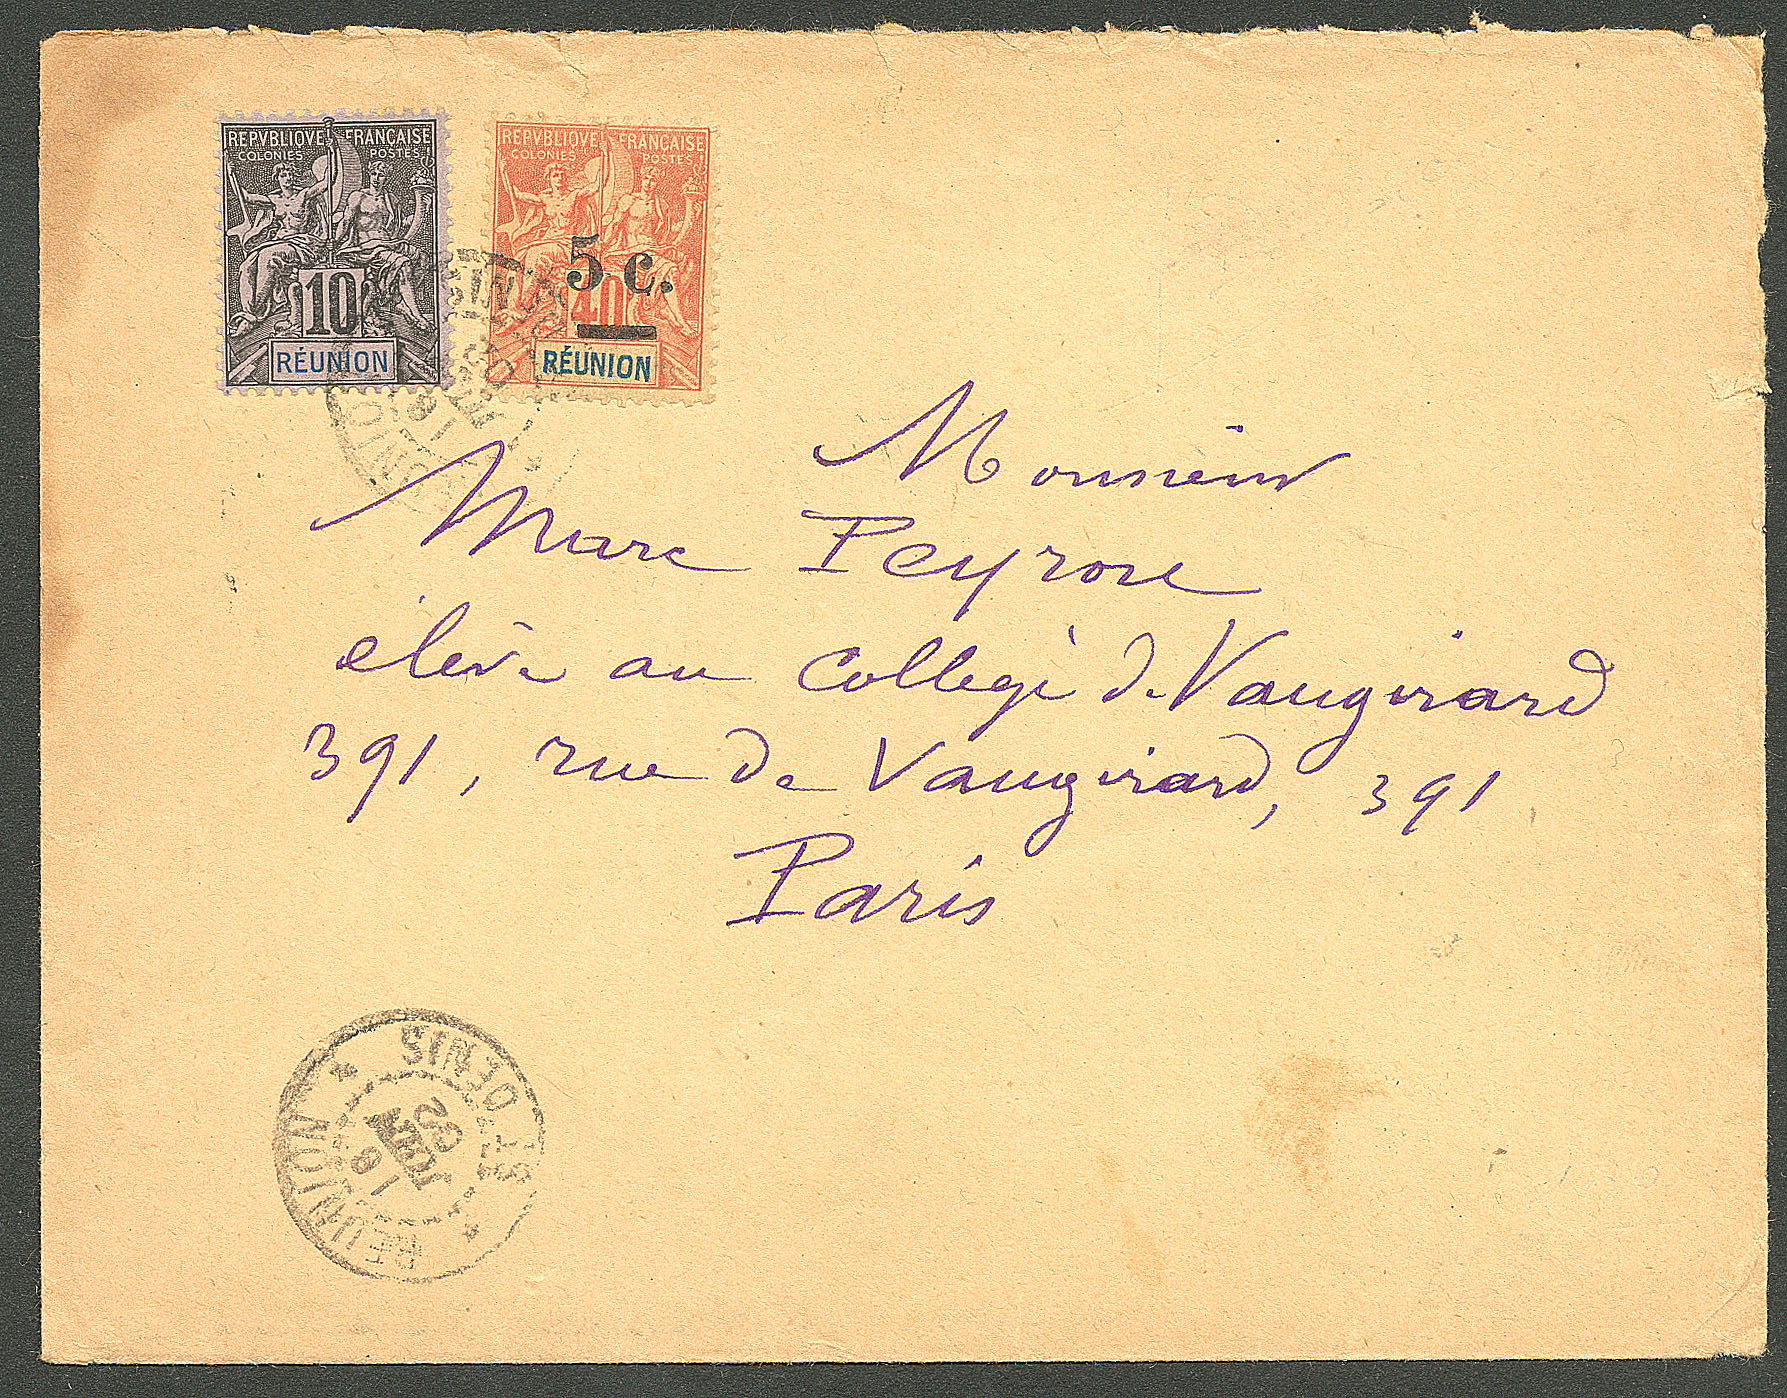 REPVBLIQVE FRANÇAISE
COLONIES POSTES
10
RÉUNION
REPVBLIQVE FRANÇAISE
COLONIES POSTES
5 c.
40
RÉUNION
Monsieur
Marc Peyrore
élève au Collège de Vaugirard
391, rue de Vaugirard, 391
Paris
ST DENIS
18
02
REUNION